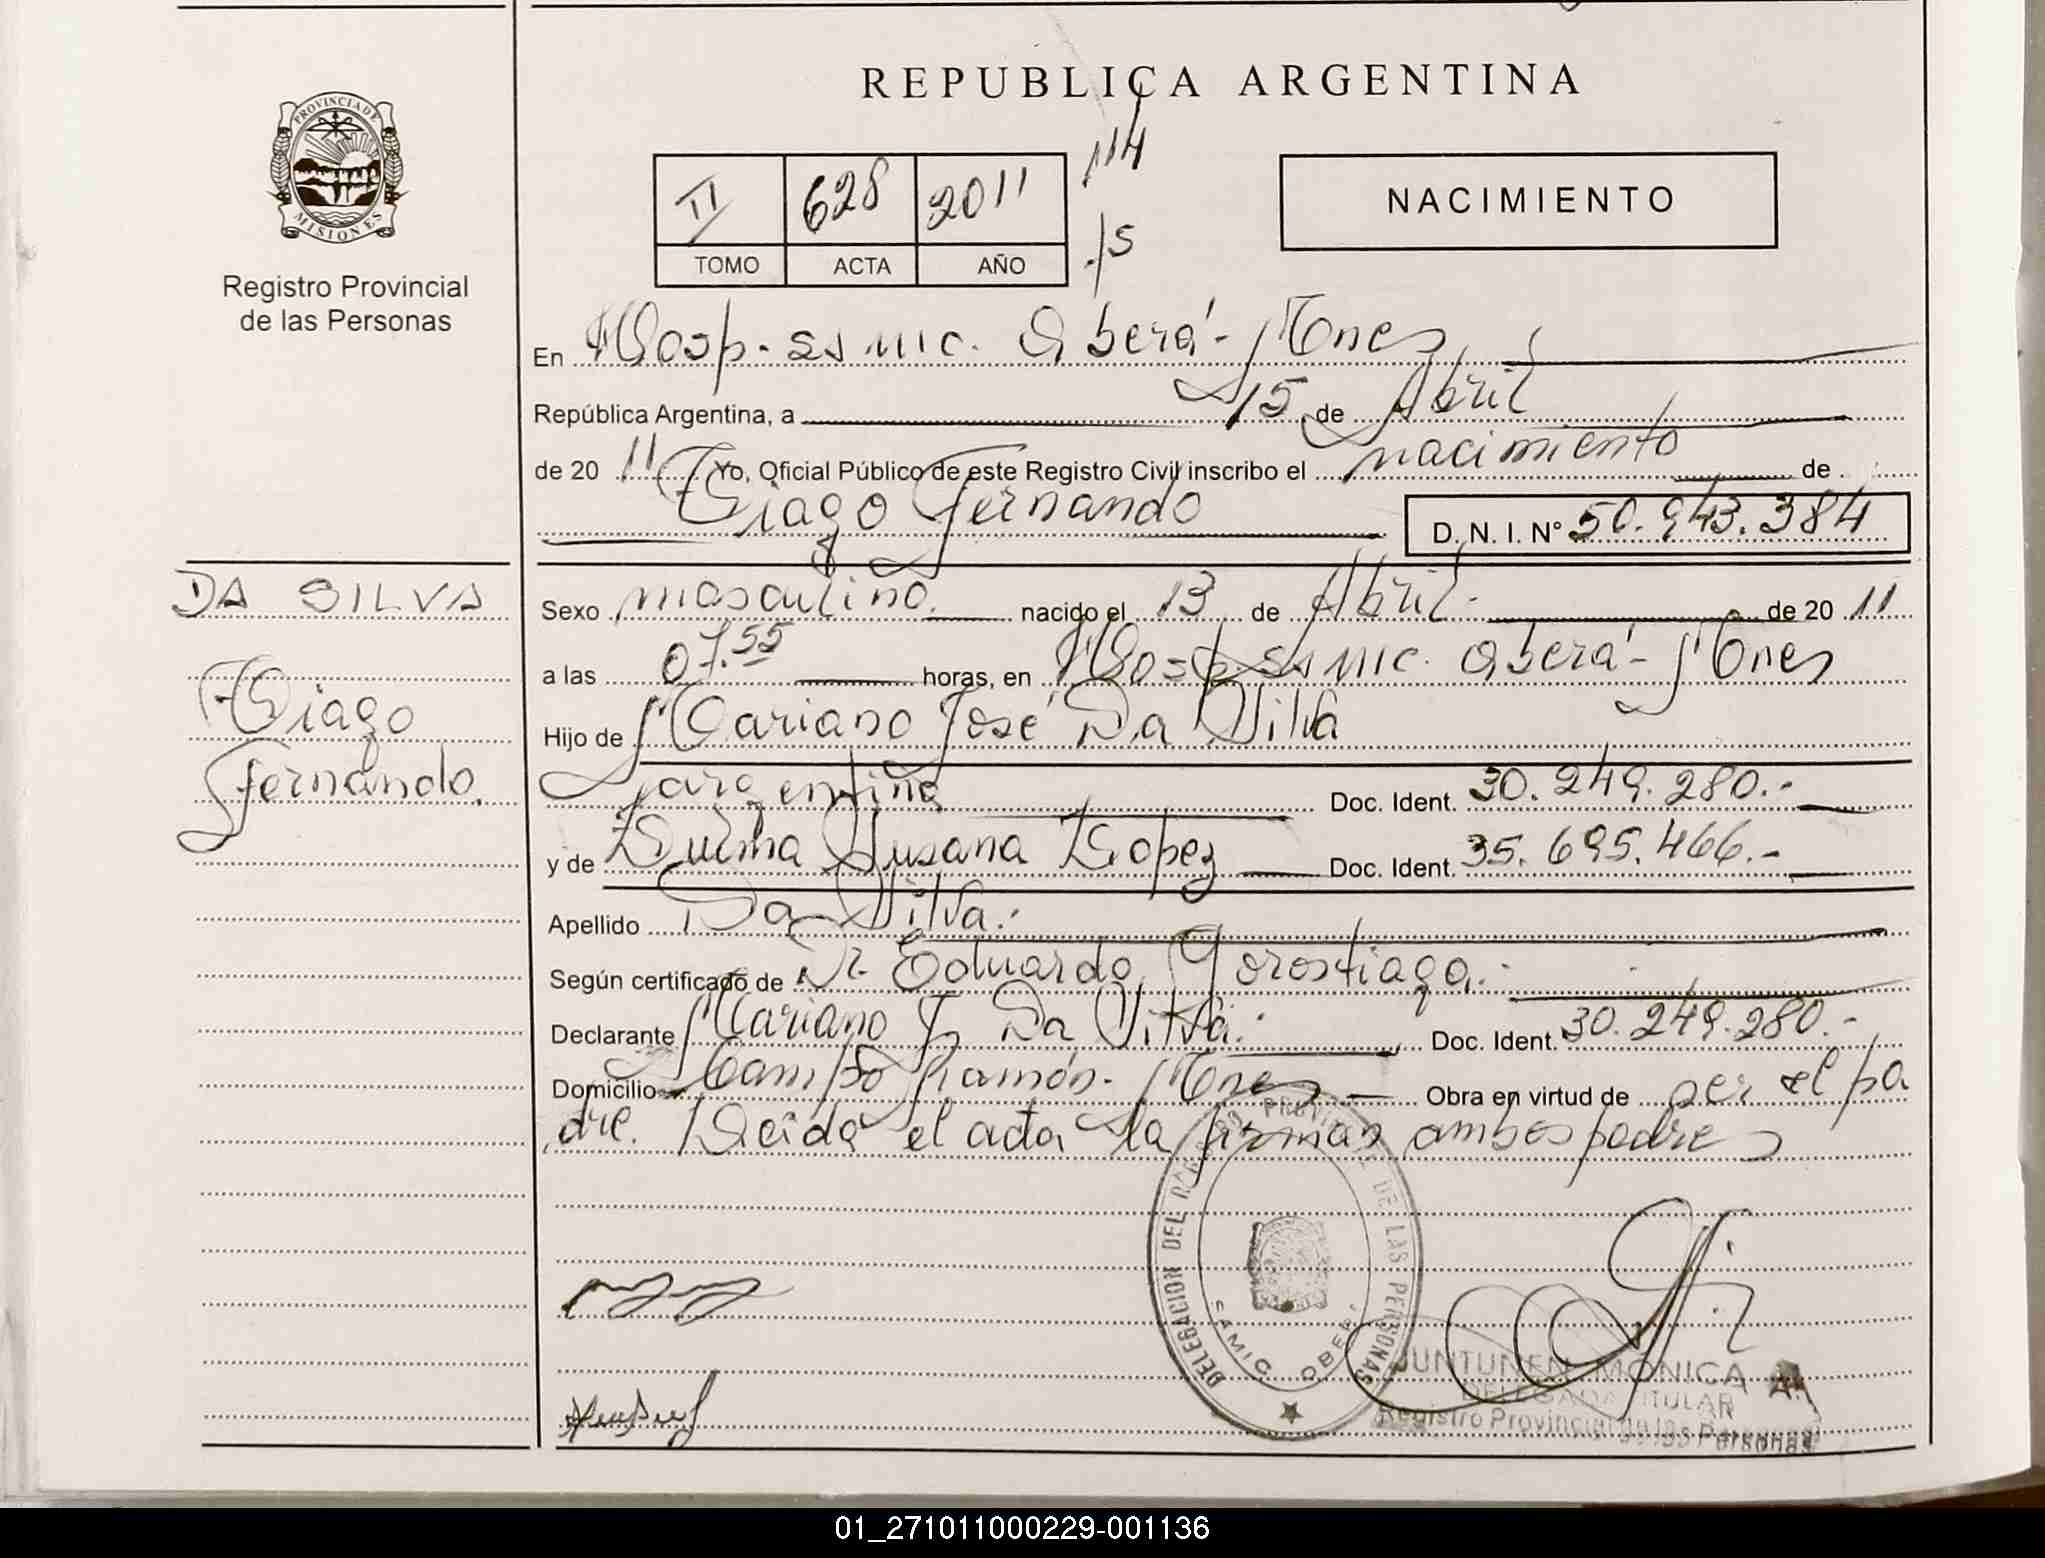 REPUBLICA ARGENTINA
PROVINCIA DE
MISIONES
Registro Provincial
de las Personas
II 628 2011
TOMO ACTA AÑO
114
15
NACIMIENTO
En Hosp. ss mic. Oberá - Mnes
República Argentina, a 15 de Abril
de 20 11 Yo, Oficial Público de este Registro Civil inscribo el nacimiento de
Tiago Fernando D. N. I. N° 50.943.384
DA SILVA
Tiago
Fernando.
Sexo masculino nacido el 13 de Abril. de 20 11
a las 07.55 horas, en Hosp. ss mic. Oberá - Mnes
Hijo de Mariano José Da Silva
argentino Doc. Ident. 30.249.280.-
y de Susana Lopez Doc. Ident. 35.695.466.-
Apellido Da Silva.
Según certificado de Dr. Eduardo Gorostiaga.
Declarante Mariano J. Da Silva. Doc. Ident. 30.249.280.-
Domicilio Campo Ramón - Mnes Obra en virtud de ser el pa
dre. Leída el acta la firman ambos padres
DELEGACION DEL REGISTRO PROVINCIAL DE LAS PERSONAS
SAMIC. OBERA
JUNTUNEN MONICA
DELEGADA TITULAR
Registro Provincial de las Personas
01_271011000229-001136